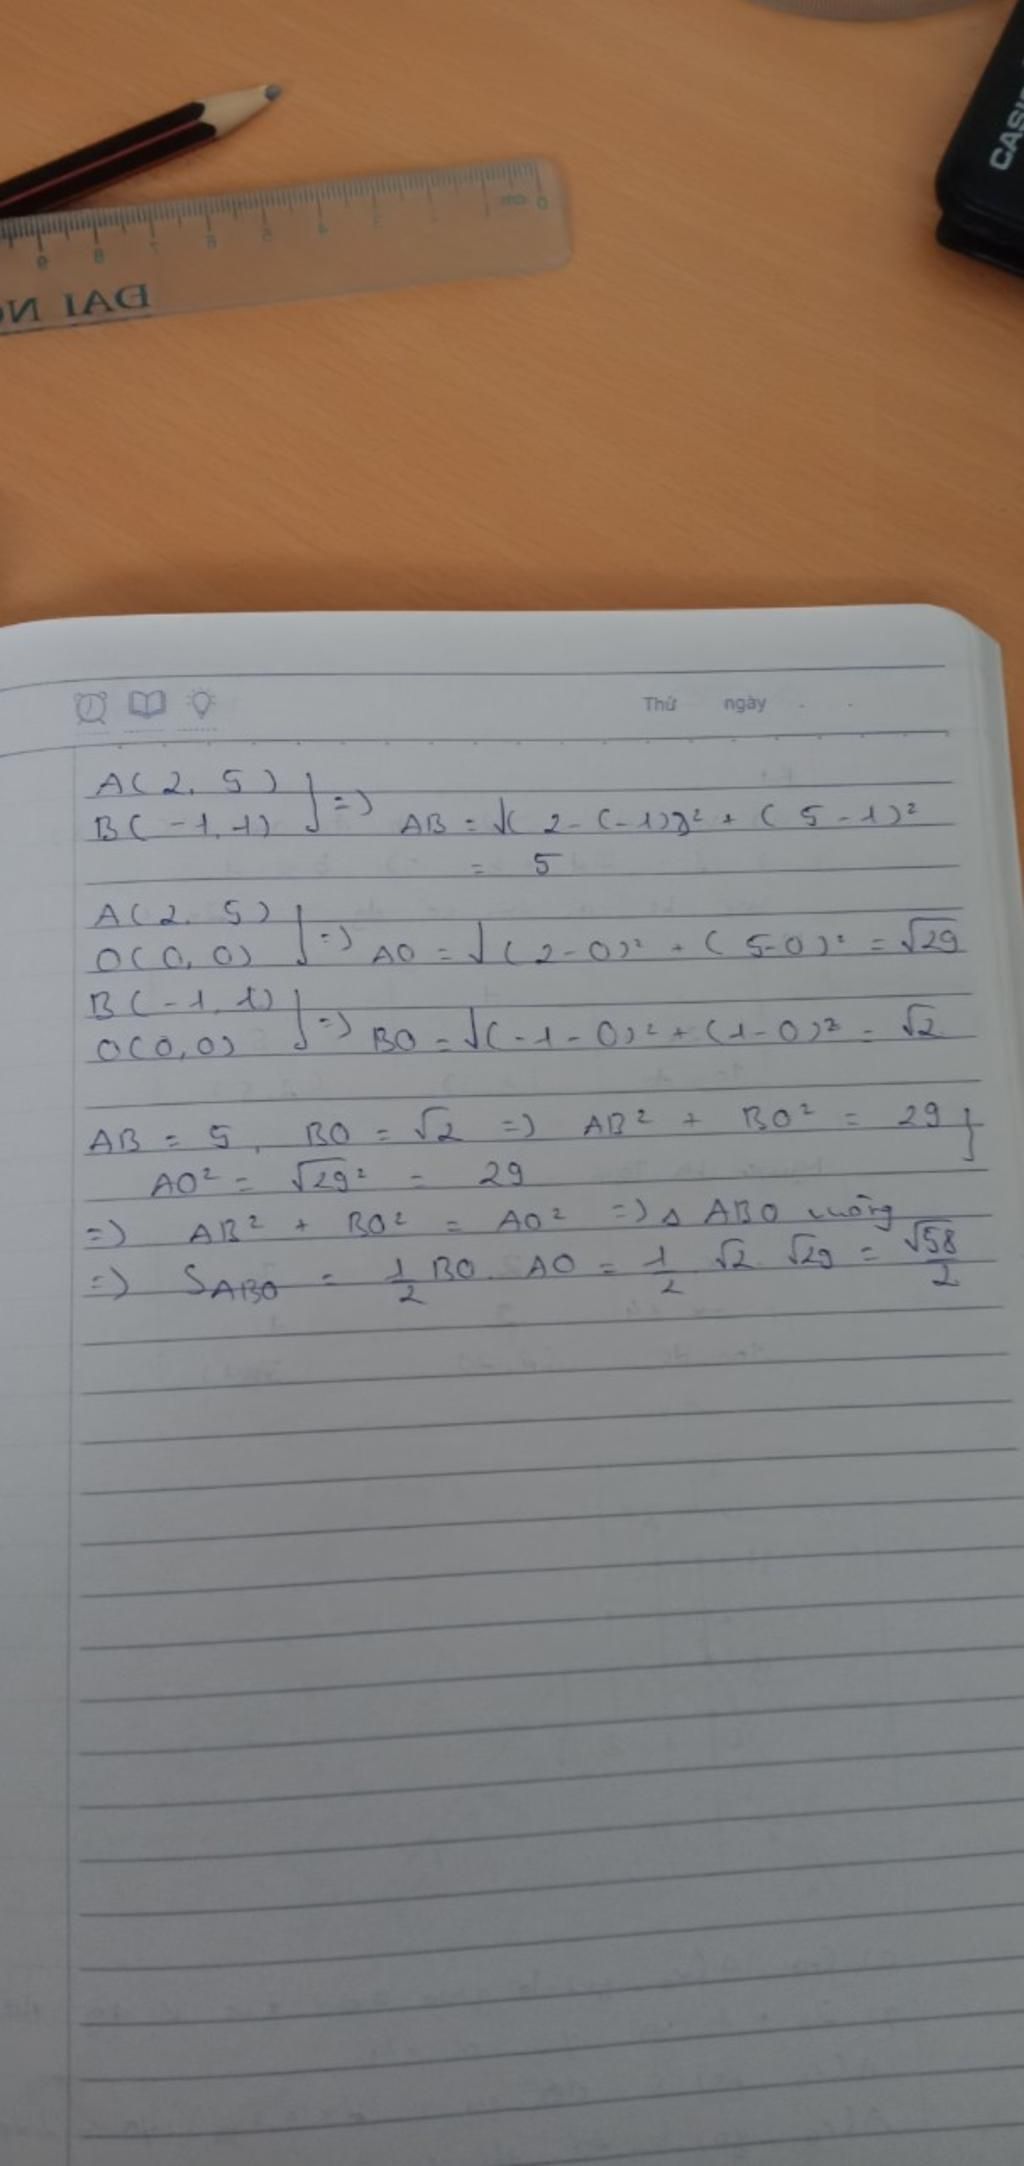 CASI
cm 0
ĐAI N
Thứ ngày
A(2, 5)
B(-1, 1)
} => AB = √(2-(-1))² + (5-1)²
= 5
A(2, 5)
O(0, 0)
} => AO = √(2-0)² + (5-0)² = √29
B(-1, 1)
O(0, 0)
} => BO = √(-1-0)² + (1-0)² = √2
AB = 5, BO = √2 => AB² + BO² = 29 }
AO² = √29² = 29
=> AB² + BO² = AO² => Δ ABO vuông
=> S_ABO = 1/2 BO. AO = 1/2 √2 √29 = √58/2